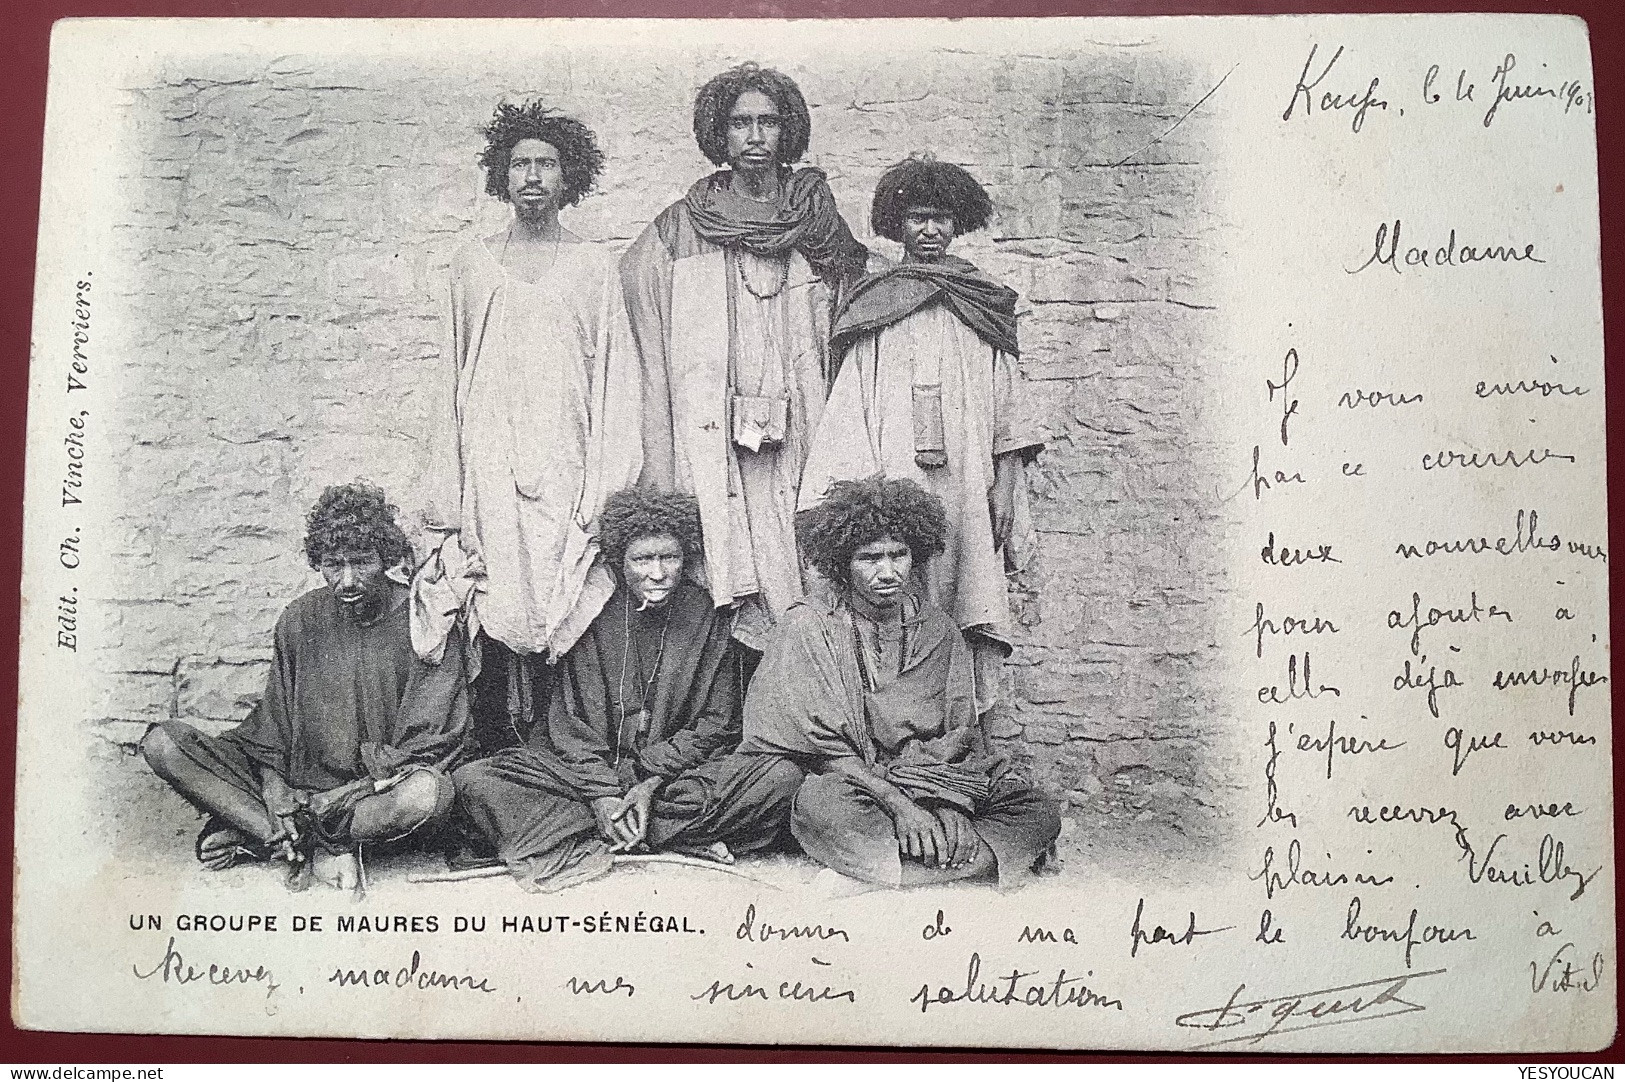 Kayes, le 4 Juin 190
Madame
Je vous envoie
par ce courrier
deux nouvelles vues
pour ajouter à
celles déjà envoyées
J'espère que vous
les recevrez avec
plaisir. Veuillez
donner de ma part le bonjour à
Vital
Recevez, madame, mes sincères salutations
UN GROUPE DE MAURES DU HAUT-SÉNÉGAL.
Edit. Ch. Vinche, Verviers.
YESYOUCAN